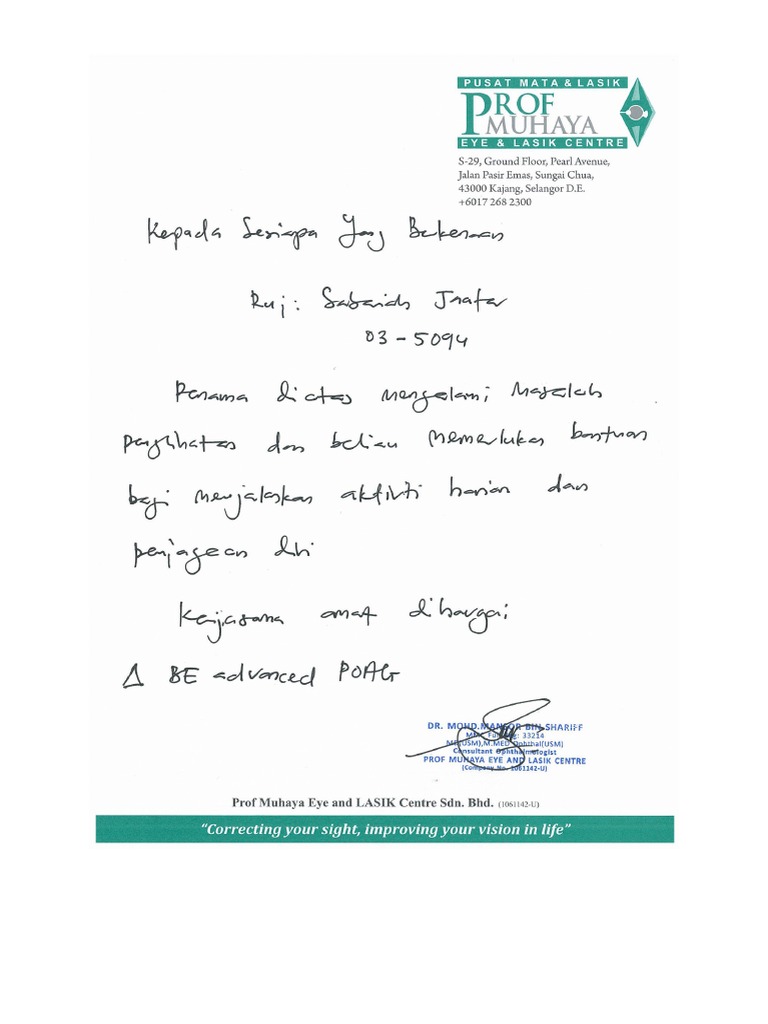 PUSAT MATA & LASIK
PROF
MUHAYA
EYE & LASIK CENTRE
S-29, Ground Floor, Pearl Avenue,
Jalan Pasir Emas, Sungai Chua,
43000 Kajang, Selangor D.E.
+6017 268 2300
Kepada Sesiapa Yang Berkenaan
Ruj: Sabariah Jaafar
03-5094
Penama diatas mengalami masalah
penglihatan dan beliau memerlukan bantuan
bagi menjalankan aktiviti harian dan
penjagaan diri
Kerjasama amat dihargai
Δ BE advanced POAG
DR. MOHD.MANSOR BIN SHARIFF
33214
MD(USM),M.MED Ophthal(USM)
Consultant Ophthalmologist
PROF MUHAYA EYE AND LASIK CENTRE
(Company No. 1061142-U)
Prof Muhaya Eye and LASIK Centre Sdn. Bhd. (1061142-U)
"Correcting your sight, improving your vision in life"